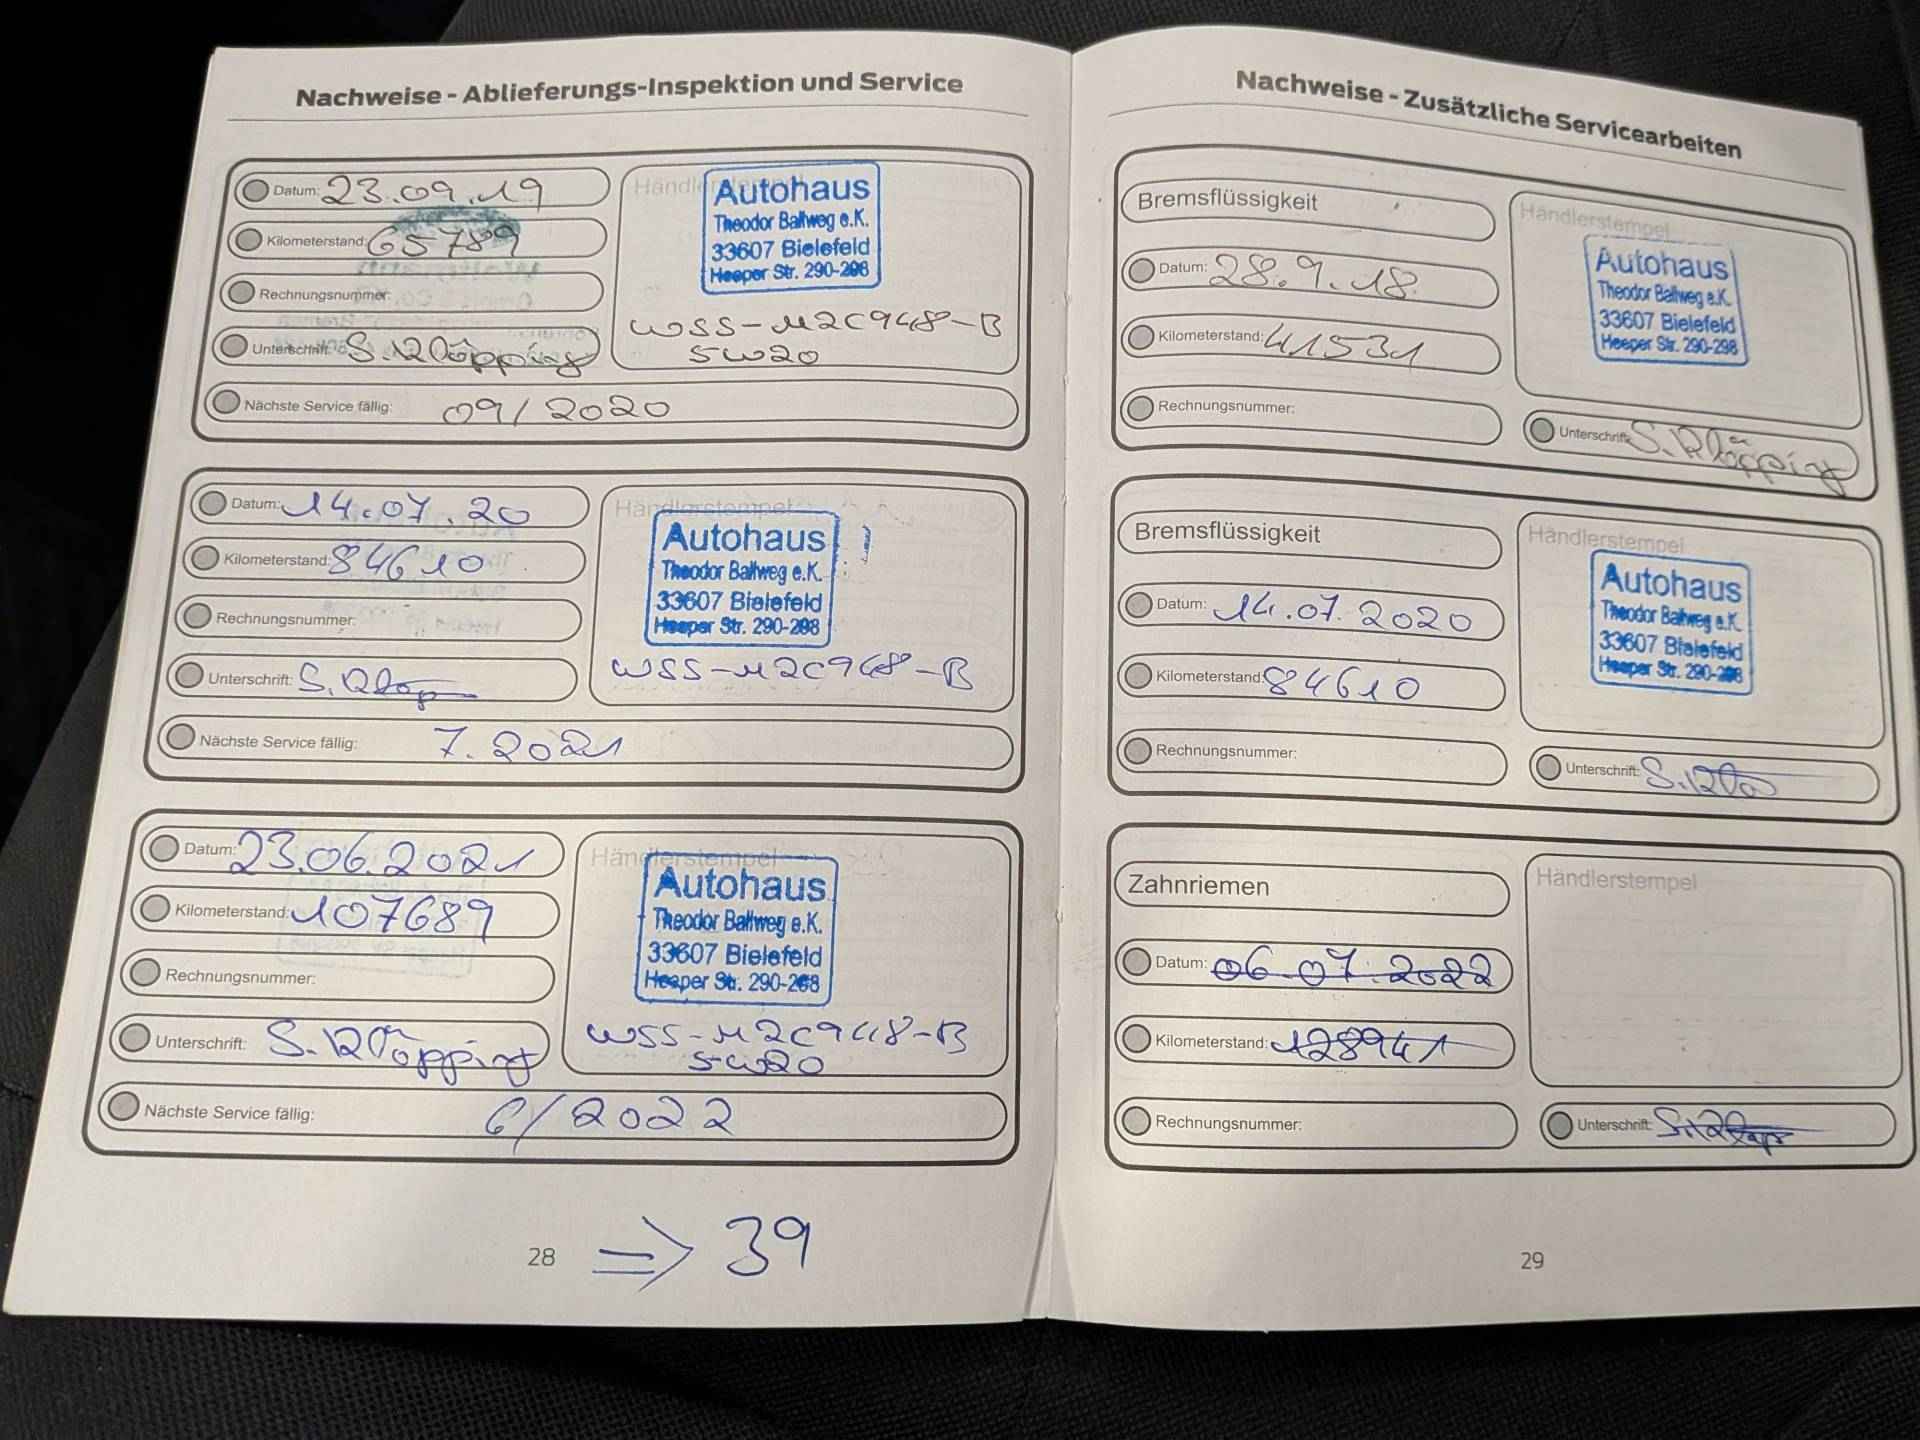 Nachweise - Ablieferungs-Inspektion und Service
Datum: 23.09.19
Kilometerstand: 65789
Rechnungsnummer:
Unterschrift: S. Klöpping
Händlerstempel
Autohaus
Theodor Ballweg e.K.
33607 Bielefeld
Heeper Str. 290-298
WSS-M2C948-B
5W20
Nächste Service fällig: 09/2020
Datum: 14.07.20
Kilometerstand: 84610
Rechnungsnummer:
Unterschrift: S. Klöp
Händlerstempel
Autohaus
Theodor Ballweg e.K.
33607 Bielefeld
Heeper Str. 290-298
WSS-M2C948-B
Nächste Service fällig: 7.2021
Datum: 23.06.2021
Kilometerstand: 107689
Rechnungsnummer:
Unterschrift: S. Klöpping
Händlerstempel
Autohaus
Theodor Ballweg e.K.
33607 Bielefeld
Heeper Str. 290-298
WSS-M2C948-B
5W20
Nächste Service fällig: 6/2022
28 => 39
Nachweise - Zusätzliche Servicearbeiten
Bremsflüssigkeit
Datum: 28.9.18
Kilometerstand: 41531
Rechnungsnummer:
Händlerstempel
Autohaus
Theodor Ballweg e.K.
33607 Bielefeld
Heeper Str. 290-298
Unterschrift: S. Klöpping
Bremsflüssigkeit
Datum: 14.07.2020
Kilometerstand: 84610
Rechnungsnummer:
Händlerstempel
Autohaus
Theodor Ballweg e.K.
33607 Bielefeld
Heeper Str. 290-298
Unterschrift: S. Klö
Zahnriemen
Datum: 06.07.2022
Kilometerstand: 128941
Rechnungsnummer:
Händlerstempel
Unterschrift:
29